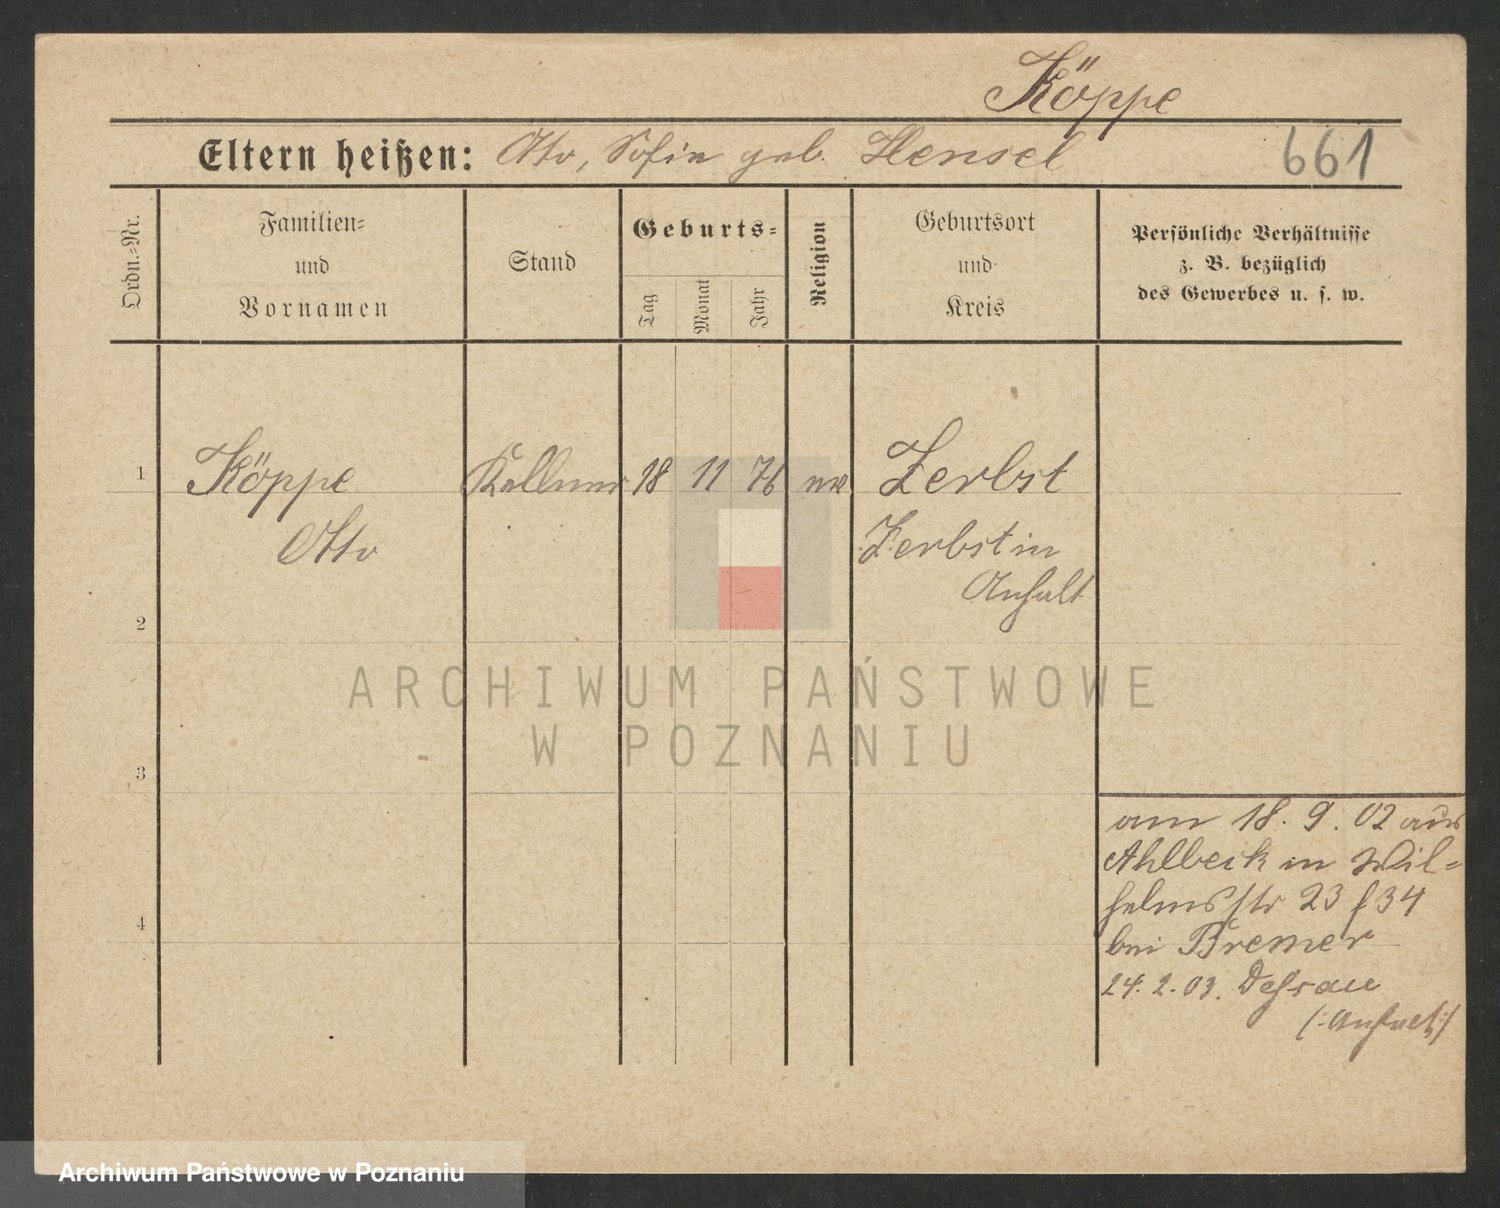 Köppe
Eltern heißen: Otto, Sofie geb. Hensel
661
Ordn.-Nr.
Familien-
und
Vornamen
Stand
Geburts-
Tag
Monat
Jahr
Religion
Geburtsort
und
Kreis
Persönliche Verhältnisse
z. B. bezüglich
des Gewerbes u. s. w.
1
Köppe Kellner 18 11 76 Zerbst
Otto
Zerbst in
Anhalt
2
3
4
am 18. 9. 02 aus
Ahlbeck in Wil-
helmsstr 23
bei Bremer
24. 2. 03. Dessau
(:Anhalt:)
ARCHIWUM PAŃSTWOWE
W POZNANIU
Archiwum Państwowe w Poznaniu